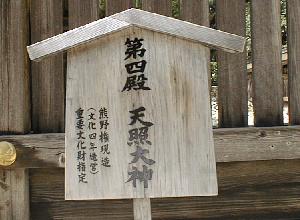 第四殿
天照大神
熊野権現造
(文化四年造営)
重要文化財指定